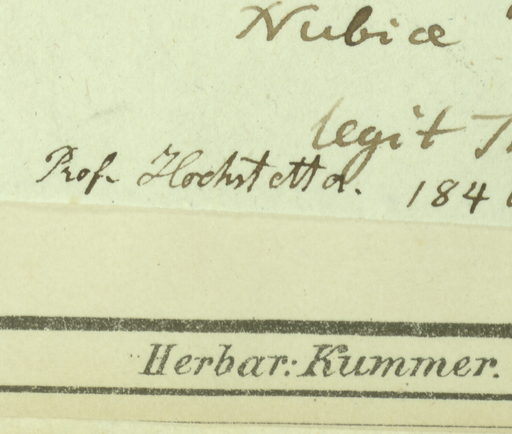 Nubiæ
legit
Prof. Hochstetter. 184
Herbar: Kummer.